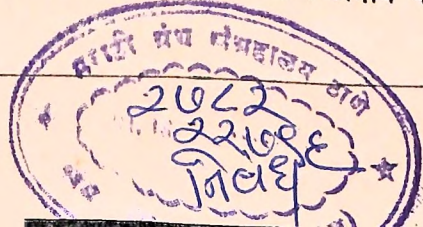 मराठी ग्रंथ संग्रहालय ठाणे
२७८२
२२७९६
निबंध